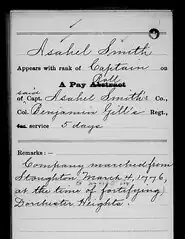 1
Asahel Smith
Appears with rank of Captain on
Roll
A Pay Abstract
said
of Capt. Asahel Smith's Co.,
Col. Benjamin Gill's Regt.,
service 5 days
Remarks:
Company marched from
Stoughton March 4, 1776,
at the time of fortifying
Dorchester Heights.